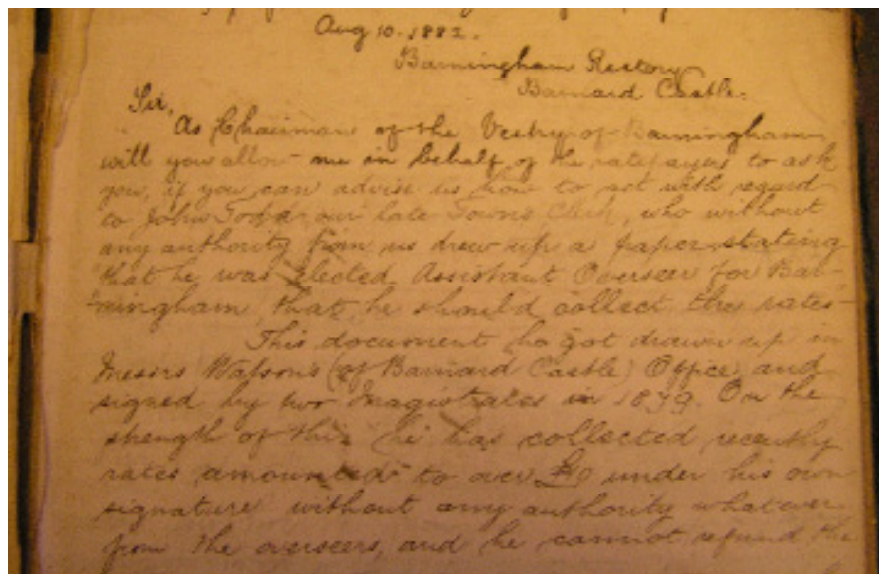 Aug 10. 1882.
Barningham Rectory
Barnard Castle.
Sir,
As Chairman of the Vestry of Barningham
will you allow me in behalf of the ratepayers to ask
you, if you can advise us how to act with regard
to John Todd our late Towns Clerk, who without
any authority from us drew up a paper stating
that he was elected Assistant Overseer for Bar-
-ningham that he should collect the rates-
This document he got drawn up in
Messrs Watsons (of Barnard Castle) Office and
signed by two Magistrates in 1879. On the
strength of this he has collected recently
rates amounted to over under his own
signature without any authority whatever
from the overseers, and he cannot refund the